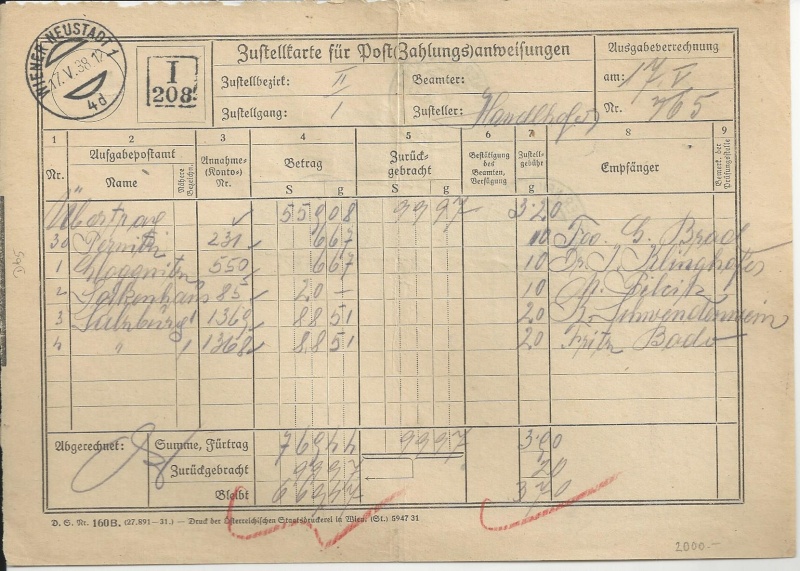 WIENER NEUSTADT 1
17.V.38.12
4d
I
208
Zustellkarte für Post(Zahlungs)anweisungen
Zustellbezirk: II
Beamter:
Zustellgang: I
Zusteller: Handlhofer
Ausgabeverrechnung
am: 17.V.
Nr. 765
1 2 3 4 5 6 7 8 9
Nr. Aufgabepostamt Name Nähere Bezeichn. Annahme-(Konto-)Nr. Betrag S g Zurückgebracht S g Bestätigung des Beamten, Verfügung Zustellgebühr g Empfänger Bemerk. der Prüfungsstelle
Übertrag 559 08 99 97 3 20
30 231 6 67 10
1 Gloggnitz 550 6 67 10 Dr. J. Klinghofer
2 85 20 — 10
3 Salzburg 1 1369 88 51 20 Schwendenwein
4 " 1 1368 88 51 20 Fritz Bado
Abgerechnet: Summe, Fürtrag 769 44 99 97 3 90
Zurückgebracht 99 97 20
Bleibt 669 47 3 70
D. S. Nr. 160B. (27.891—31.) — Druck der Österreichischen Staatsdruckerei in Wien. (St.) 5947 31
D65
2000.-